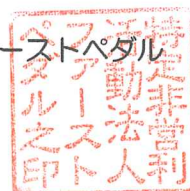 ーストペダル
特定非営利
活動法人
ファースト
ペダル之印